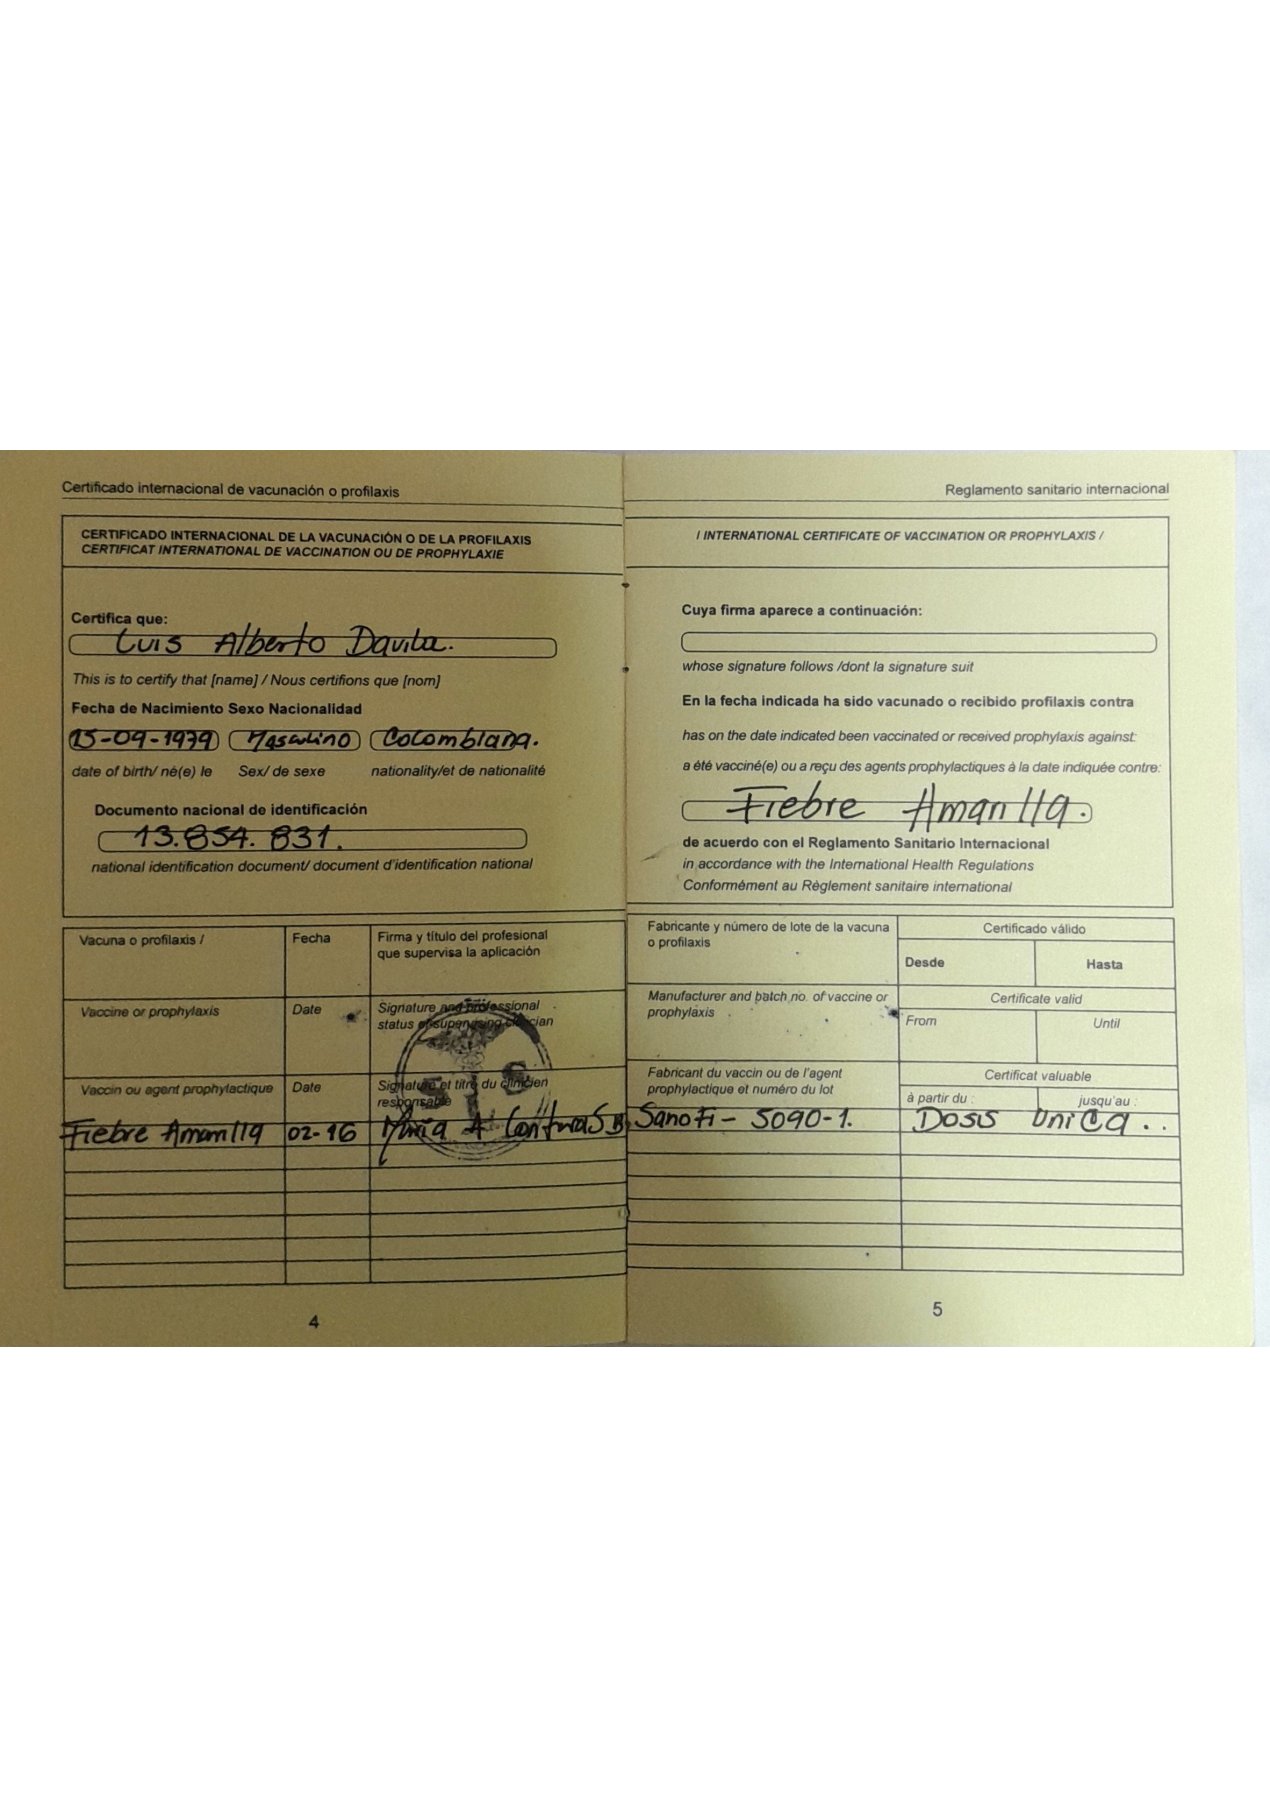 Certificado internacional de vacunación o profilaxis
CERTIFICADO INTERNACIONAL DE LA VACUNACIÓN O DE LA PROFILAXIS
CERTIFICAT INTERNATIONAL DE VACCINATION OU DE PROPHYLAXIE
Certifica que:
Luis Alberto Davila.
This is to certify that [name] / Nous certifions que [nom]
Fecha de Nacimiento Sexo Nacionalidad
15-09-1979 Masculino Colombiana.
date of birth/ né(e) le Sex/ de sexe nationality/et de nationalité
Documento nacional de identificación
13.854.831.
national identification document/ document d'identification national
Vacuna o profilaxis / Fecha Firma y título del profesional
que supervisa la aplicación
Vaccine or prophylaxis Date Signature and professional
status of supervising clinician
Vaccin ou agent prophylactique Date Signature et titre du clinicien
responsable
Fiebre Amarilla 02-16 Maria A
4
Reglamento sanitario internacional
/ INTERNATIONAL CERTIFICATE OF VACCINATION OR PROPHYLAXIS /
Cuya firma aparece a continuación:
whose signature follows /dont la signature suit
En la fecha indicada ha sido vacunado o recibido profilaxis contra
has on the date indicated been vaccinated or received prophylaxis against:
a été vacciné(e) ou a reçu des agents prophylactiques à la date indiquée contre:
Fiebre Amarilla.
de acuerdo con el Reglamento Sanitario Internacional
in accordance with the International Health Regulations
Conformément au Règlement sanitaire international
Fabricante y número de lote de la vacuna
o profilaxis
Certificado válido
Desde Hasta
Manufacturer and batch no. of vaccine or
prophylaxis
Certificate valid
From Until
Fabricant du vaccin ou de l'agent
prophylactique et numéro du lot
Certificat valuable
à partir du : jusqu'au :
Sanofi - 5090-1. Dosis Unica..
5